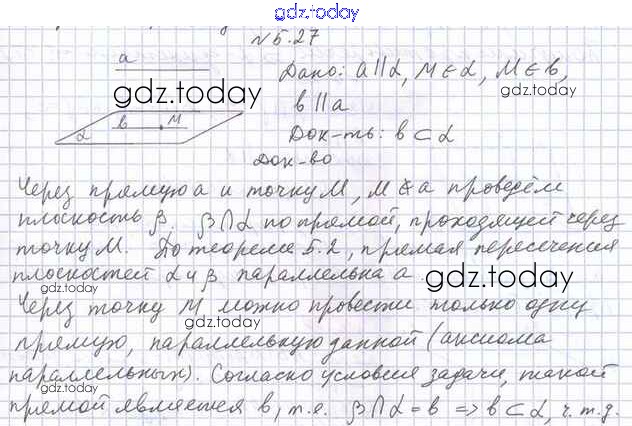 gdz.today
№5.27
a
Дано: a∥α, M∈α, M∈в,
gdz.today
gdz.today
в∥a
в M
α
Док-ть: в⊂α
gdz.today
Док-во
Через прямую a и точку M, M∉a проведём
плоскость β, β∩α по прямой, проходящей через
точку M. По теореме 5.2, прямая пересечения
плоскостей α и β параллельна a
gdz.today
Через точку M можно провести только одну
прямую, параллельную данной (аксиома
параллельных). Согласно условия задачи такой
прямой является в, т.е. β∩α=в => в⊂α, ч.т.д.
gdz.today
gdz.today